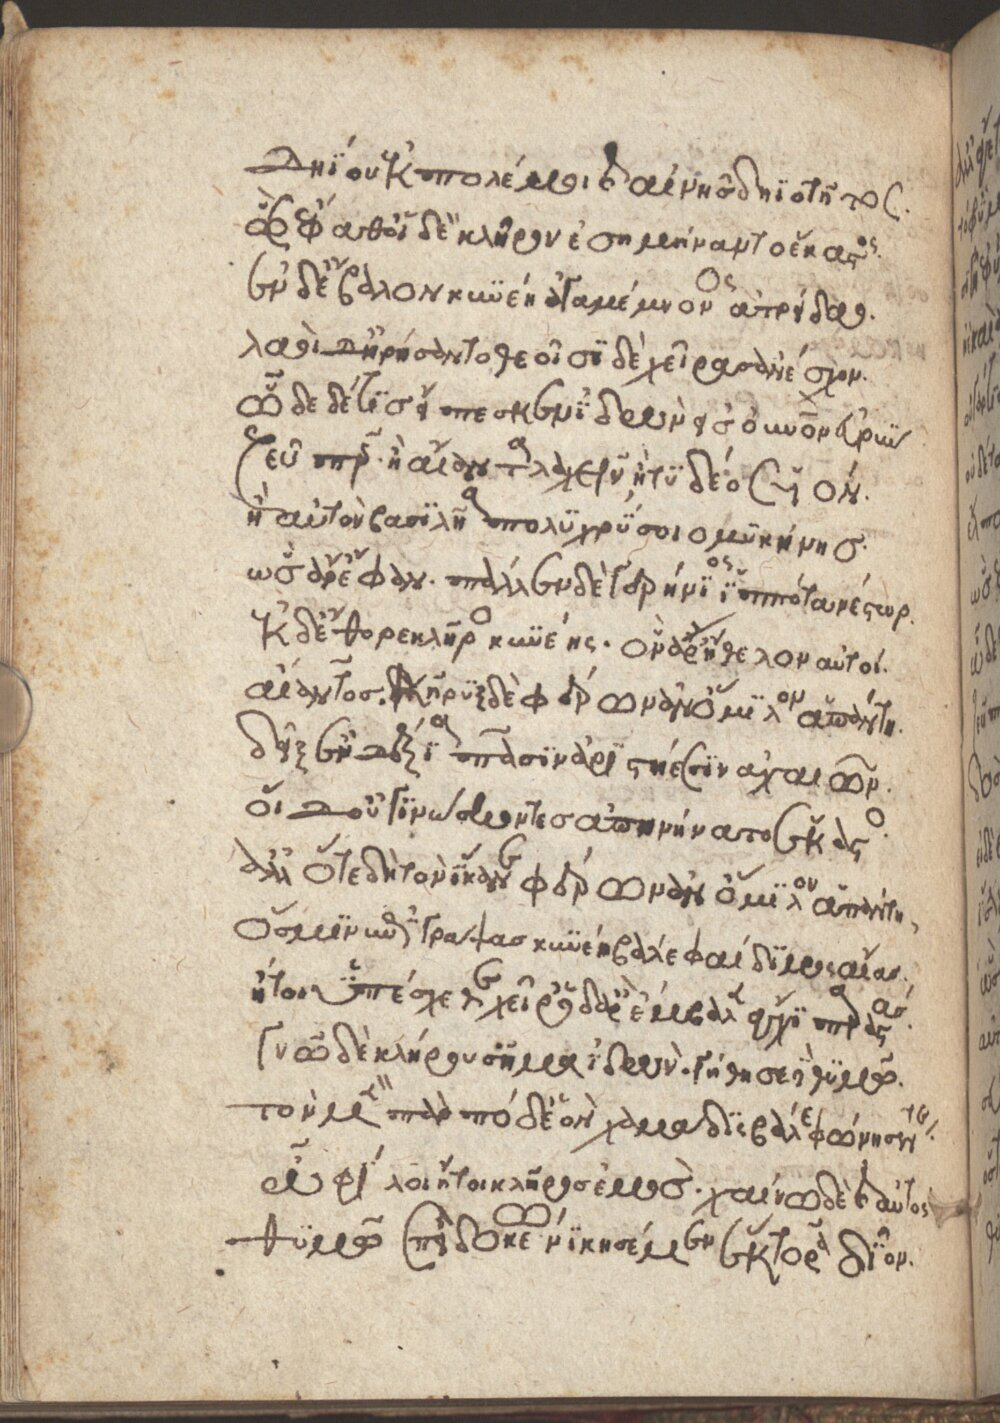 δηΐου ἐκ πολέμοιο καὶ αἰνῆς δηϊοτῆτος.
ὣς ἔφαθ' οἱ δὲ κλῆρον ἐσημήναντο ἕκαστος.
ἐν δ' ἔβαλον κυνέη ἀγαμέμνονος ἀτρείδαο.
λαοὶ δ' ἠρήσαντο θεοῖσι δὲ χεῖρας ἀνέσχον.
ὧδε δέ τις εἴπεσκεν ἰδὼν εἰς οὐρανὸν εὐρύν
ζεῦ πάτερ ἢ αἴαντα λαχεῖν ἢ τυδέος υἱόν.
ἢ αὐτὸν βασιλῆα πολυχρύσοιο μυκήνης.
ὣς ἄρ' ἔφαν. πάλλεν δὲ γερήνιος ἱππότα νέστωρ.
ἐκ δ' ἔθορε κλῆρος κυνέης. ὃν ἄρ' ἤθελον αὐτοί.
αἴαντος. κῆρυξ δὲ φέρων ἀν' ὅμιλον ἁπάντη.
δεῖξ' ἐνδέξια πᾶσιν ἀριστήεσιν ἀχαιῶν.
οἱ δ' οὐ γινώσκοντες ἀπηνήναντο ἕκαστος.
ἀλλ' ὅτε δὴ τὸν ἵκανε φέρων ἀν' ὅμιλον ἁπάντη,
ὅς μιν ἐπιγράψας κυνέη βάλε φαίδιμος αἴας.
ἤτοι ὑπέσχεθε χεῖρ' ὁ δ' ἄρ' ἔμβαλεν ἄγχι παραστάς.
γνῶ δὲ κλήρου σῆμα ἰδών. γήθησε δὲ θυμῷ.
τὸν μὲν πὰρ πόδ' ἑὸν χαμάδις βάλε φώνησέν τε.
ὦ φίλοι ἤτοι κλῆρος ἐμός. χαίρω δὲ καὶ αὐτὸς
θυμῷ ἐπεὶ δοκέω νικησέμεν ἕκτορα δῖον.